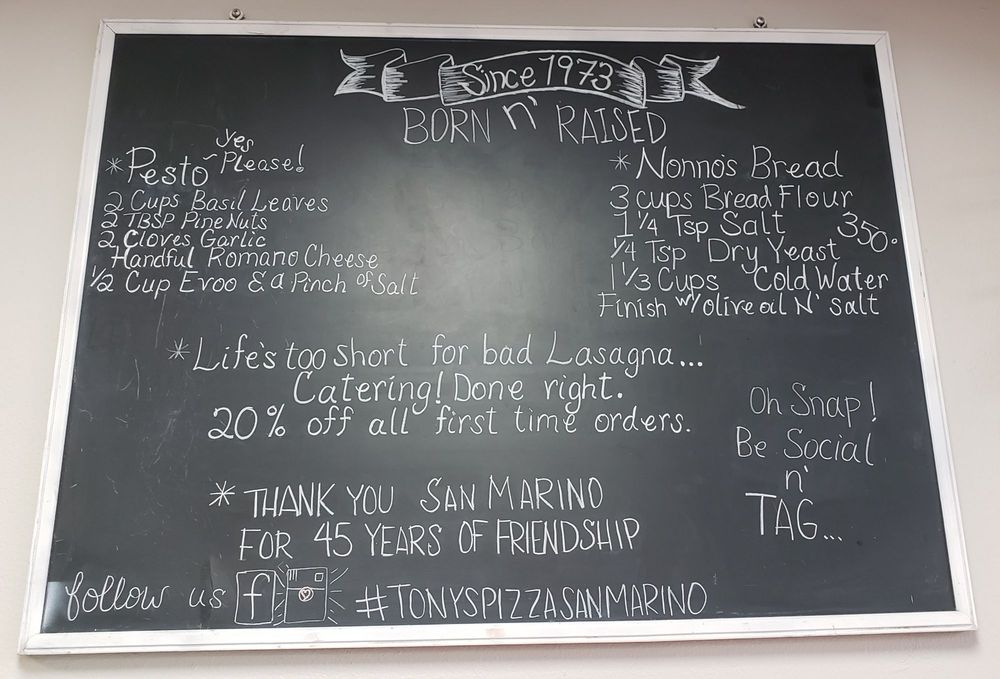 Since 1973
BORN n' RAISED
* Pesto ~ yes Please!
2 Cups Basil Leaves
2 TBSP Pine Nuts
2 Cloves Garlic
Handful Romano Cheese
1/2 Cup Evoo & a Pinch of Salt
* Nonno's Bread
3 cups Bread Flour
1 1/4 Tsp Salt 350°
1/4 Tsp Dry Yeast
1 1/3 Cups Cold Water
Finish w/ olive oil N' salt
* Life's too short for bad Lasagna...
Catering! Done right.
20% off all first time orders.
Oh Snap!
Be Social
n'
TAG...
* THANK YOU SAN MARINO
FOR 45 YEARS OF FRIENDSHIP
follow us f #TONYSPIZZASANMARINO